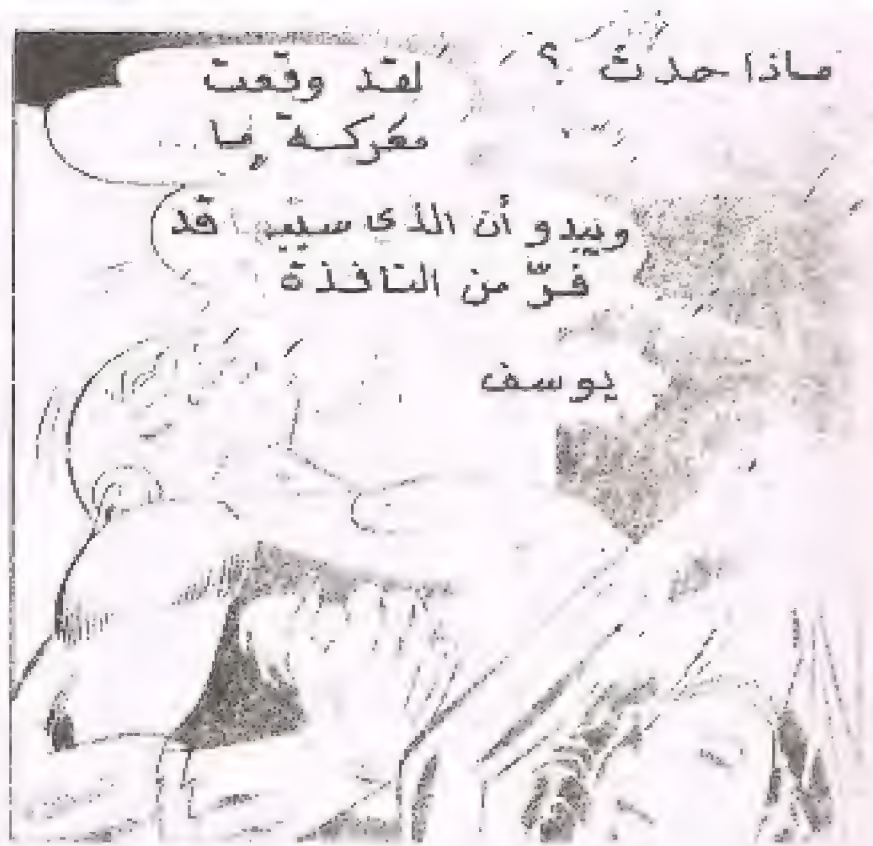 ماذا حدث ؟
لقد وقعت
معركة ما ...
ويبدو أن الذى سببها قد
فرّ من النافذة
يوسف